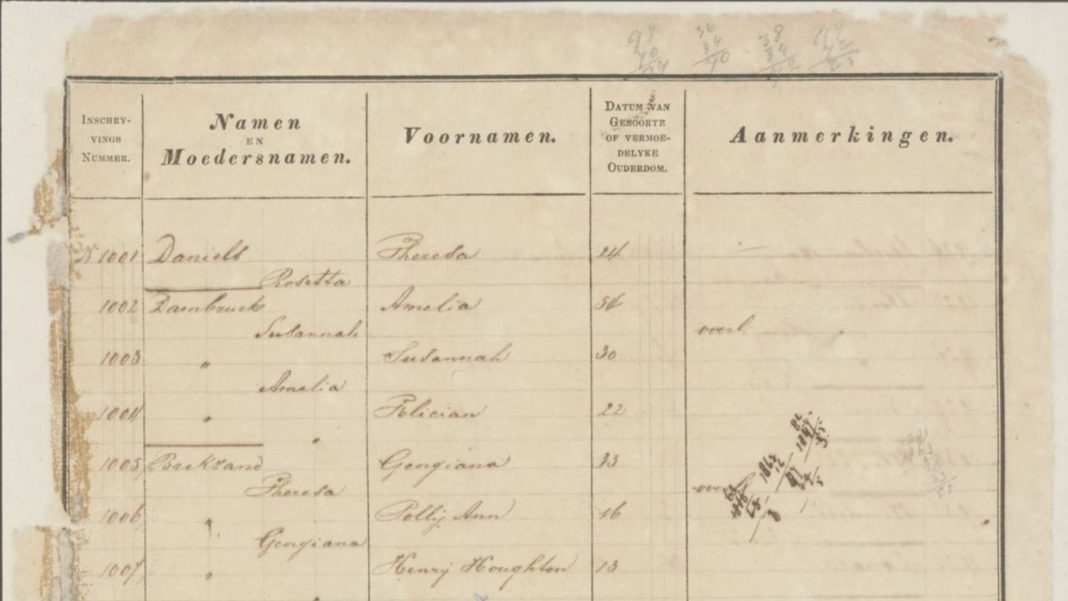 INSCHRY-
VINGS
NUMMER.
Namen
EN
Moedersnamen.
Voornamen.
DATUM VAN
GEBOORTE
OF VERMOE-
DELYKE
OUDERDOM.
Aanmerkingen.
N 1001 Daniels Theresa 24
Rosetta
1002 Amelia 54
Susannah overl.
1003 " Susannah 30
Amelia
1004 " Felician 22
"
1005 Georgiana 33
Theresa overl
1006 " Polly Ann 16
Georgiana
1007 " Henry Houghton 13